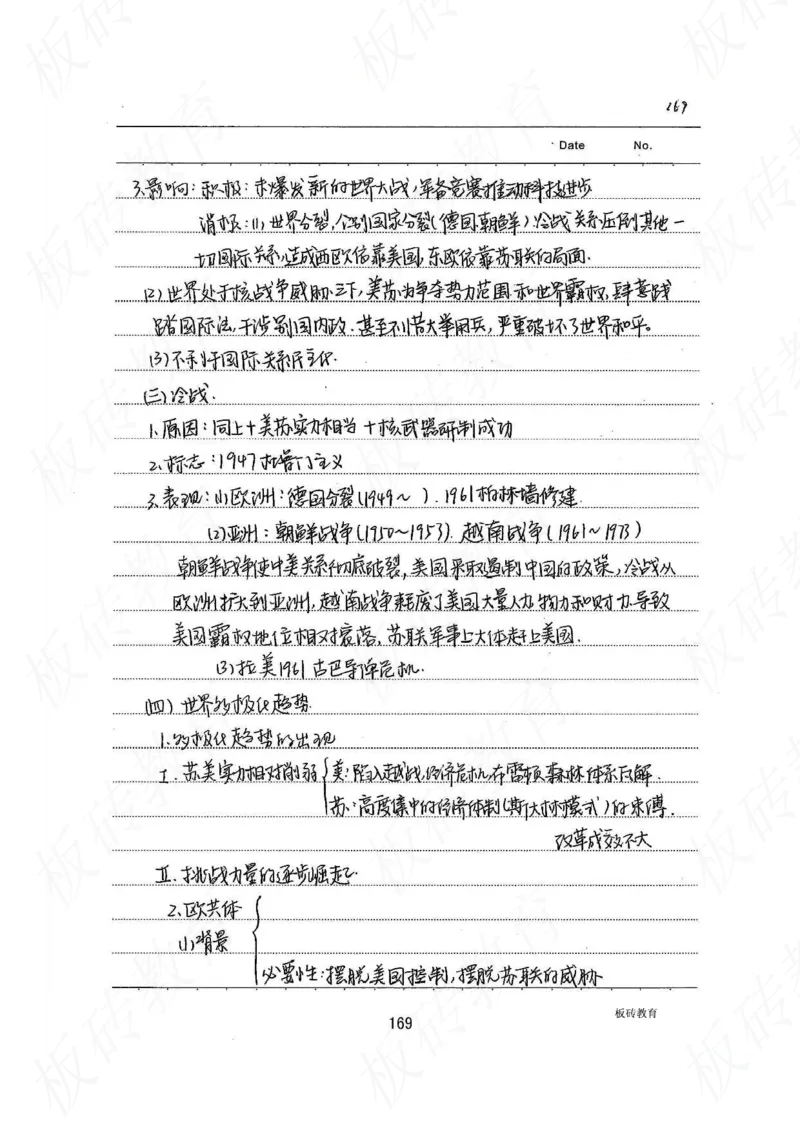 169
Date No.
3.影响：积极：未爆发新的世界大战，军备竞赛推动科技进步
消极：(1)世界分裂，个别国家分裂（德国、朝鲜）冷战关系压倒其他一
切国际关系，造成西欧依靠美国，东欧依靠苏联的局面.
(2)世界处于核战争威胁之下，美苏为争夺势力范围和世界霸权，肆意践
踏国际法，干涉别国内政.甚至不惜大举用兵，严重破坏了世界和平。
(3)不利于国际关系民主化.
(三)冷战.
1.原因：同上＋美苏实力相当＋核武器研制成功
2.标志：1947杜鲁门主义
3.表现：(1)欧洲：德国分裂(1949～ ).1961柏林墙修建.
(2)亚洲：朝鲜战争(1950～1953).越南战争(1961～1973)
朝鲜战争使中美关系彻底破裂，美国采取遏制中国的政策，冷战从
欧洲扩大到亚洲，越南战争耗废了美国大量人力物力和财力，导致
美国霸权地位相对衰落，苏联军事上大体赶上美国.
(3)拉美1961古巴导弹危机.
(四)世界多极化趋势.
1.多极化趋势的出现
I.苏美实力相对削弱 美：陷入越战，经济危机，布雷顿森林体系瓦解.
苏：高度集中的经济体制(斯大林模式)的束缚.
改革成效不大
II.挑战力量的逐步崛起
2.欧共体
(1)背景
必要性：摆脱美国控制，摆脱苏联的威胁
169
板砖教育